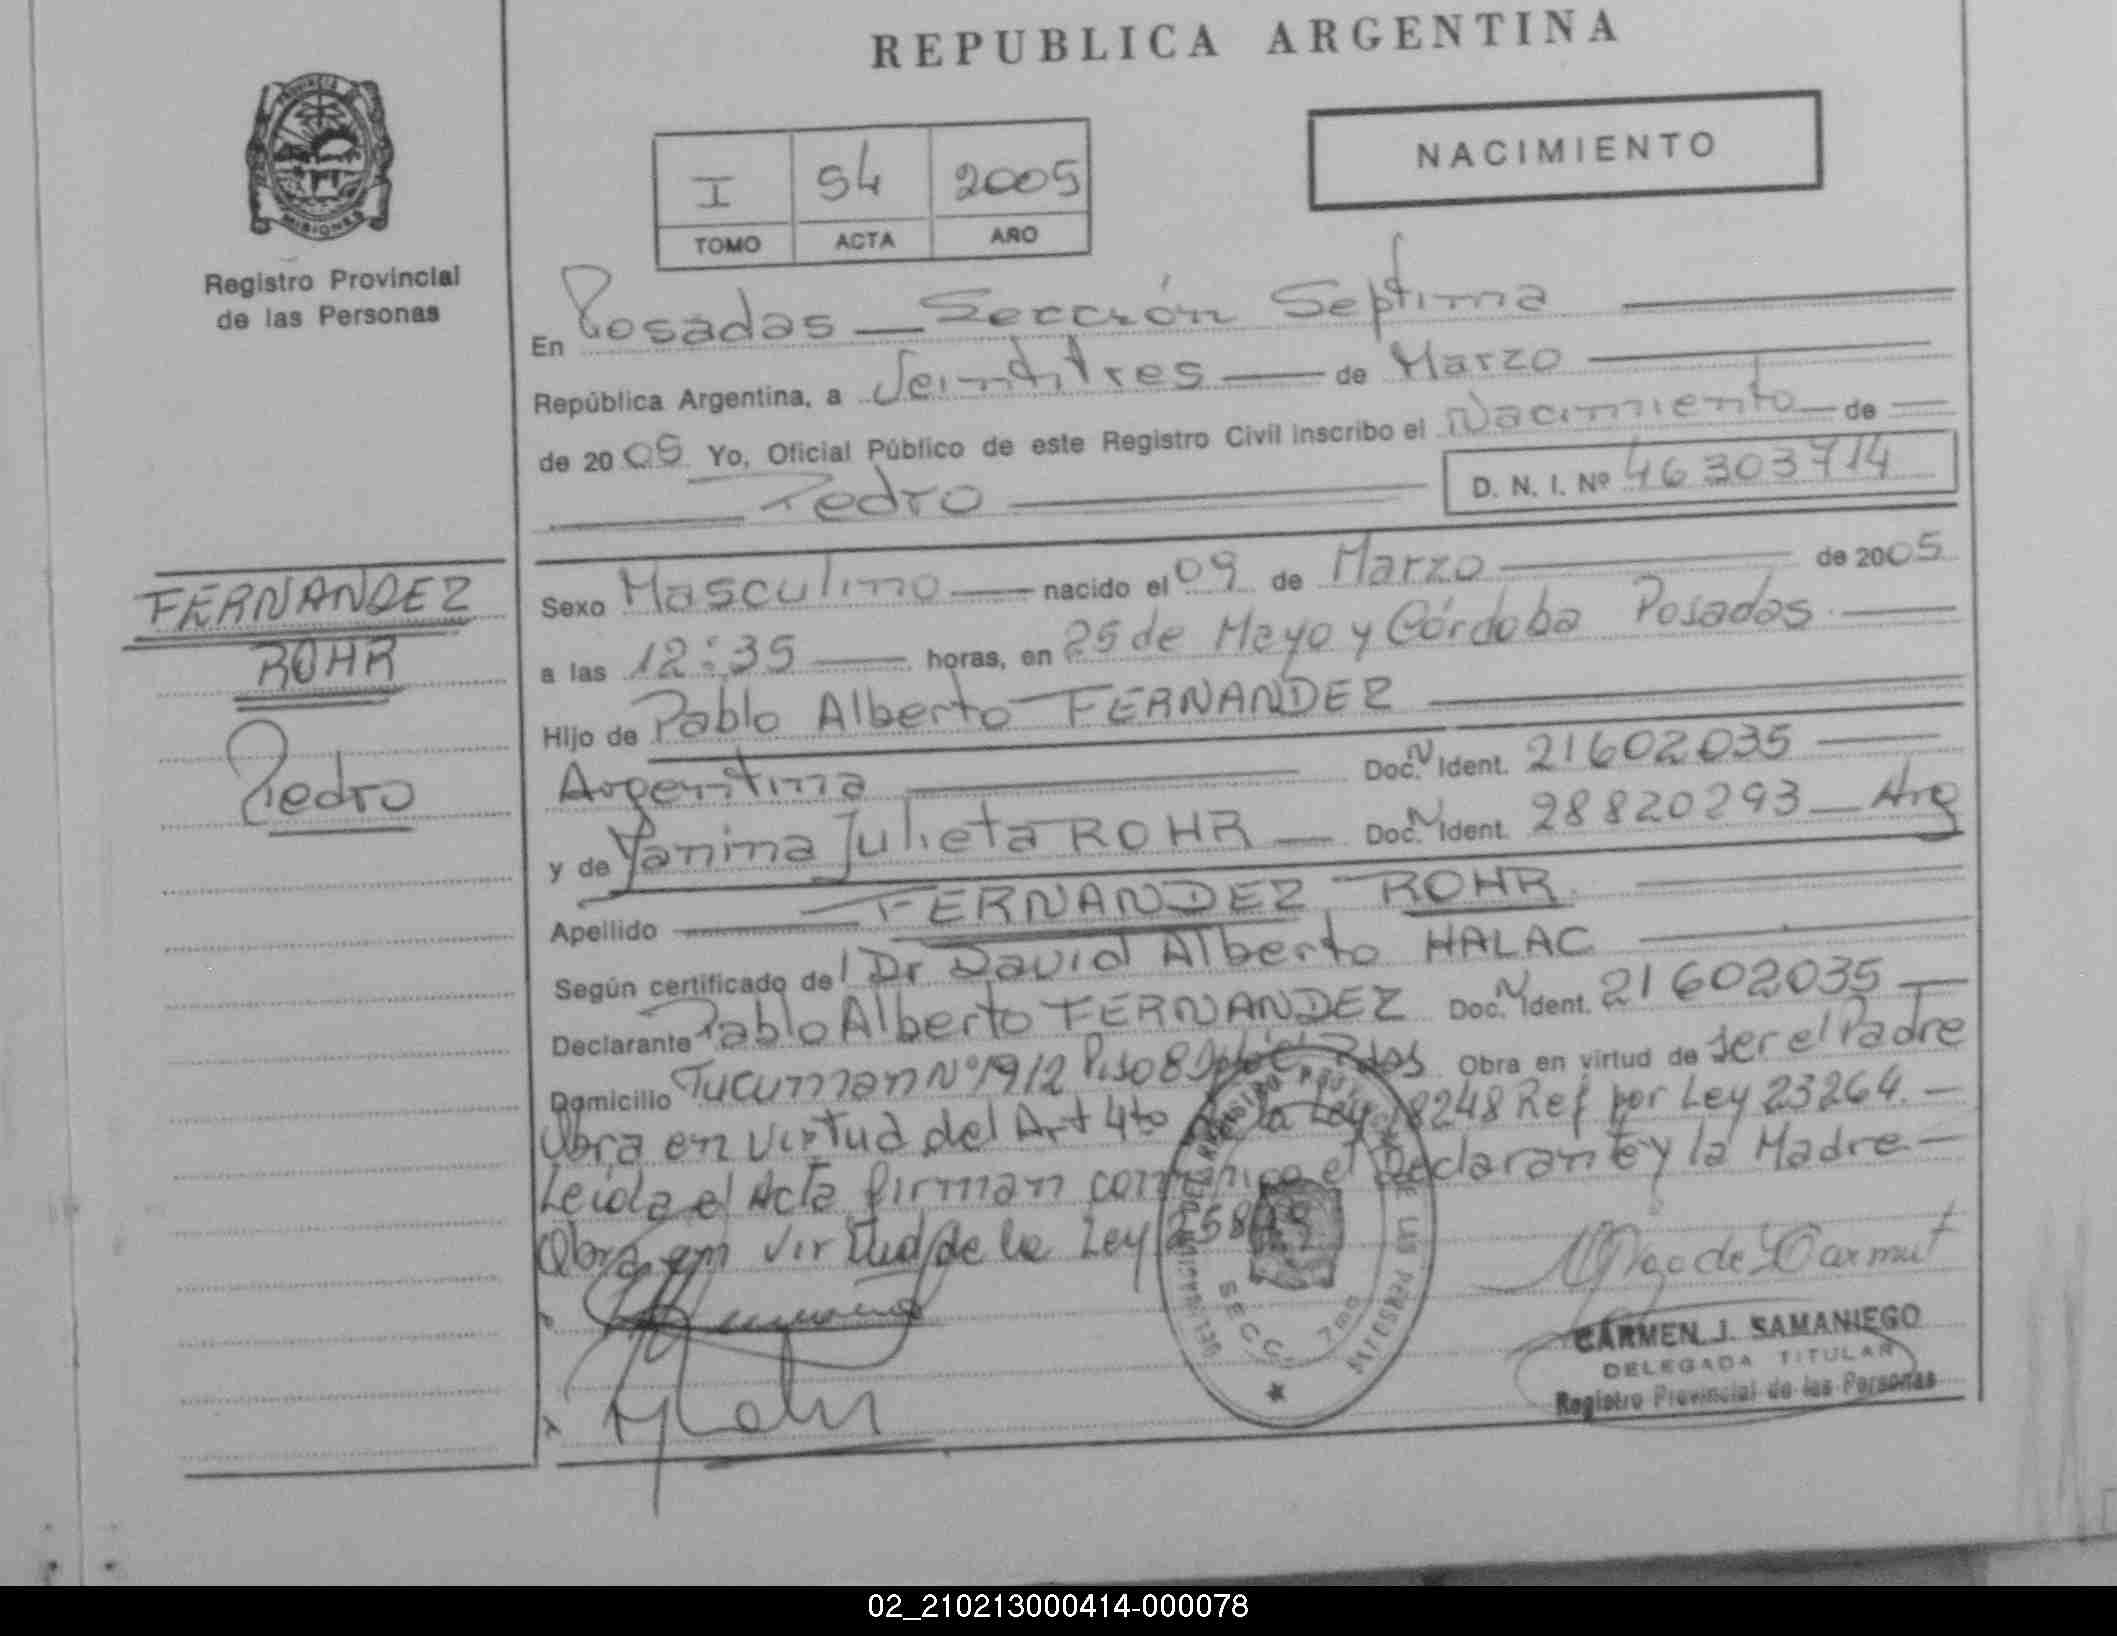 REPUBLICA ARGENTINA
PROVINCIA DE
MISIONES
Registro Provincial
de las Personas
NACIMIENTO
I 54 2005
TOMO ACTA AÑO
En Posadas — Sección Septima
República Argentina, a Veintitres — de Marzo
de 2005 Yo, Oficial Público de este Registro Civil inscribo el Nacimiento — de
Pedro D. N. I. Nº 46303714
FERNANDEZ
ROHR
Pedro
Sexo Masculino — nacido el 09 de Marzo — de 2005
a las 12:35 — horas, en 25 de Mayo y Córdoba Posadas
Hijo de Pablo Alberto FERNANDEZ
Argentina — Doc. N Ident. 21602035
y de Yanina Julieta ROHR — Doc. N Ident. 28820293 — Arg
Apellido — FERNANDEZ ROHR
Según certificado del Dr David Alberto HALAC
Declarante Pablo Alberto FERNANDEZ Doc. N Ident. 21602035 —
Domicilio Tucuman Nº 1912 Piso 8 Pdas. Obra en virtud de ser el Padre
Obra en virtud del Art 4to de la Ley 18248 Ref por Ley 23264. —
Leida el Acta firman conmigo el Declarante y la Madre —
Obra en virtud de la Ley
SECC. 7ma
CARMEN J. SAMANIEGO
DELEGADA TITULAR
Registro Provincial de las Personas
02_210213000414-000078